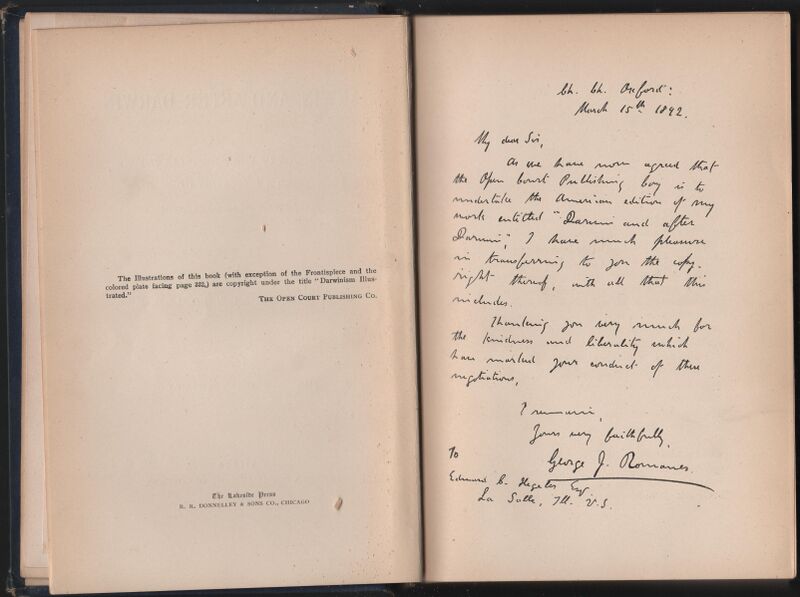 The Illustrations of this book (with exception of the Frontispiece and the
colored plate facing page 332,) are copyright under the title "Darwinism Illus-
trated."
THE OPEN COURT PUBLISHING CO.
The Lakeside Press
R. R. DONNELLEY & SONS CO., CHICAGO
Ch. Ch. Oxford:
March 15th 1892.
My dear Sir,
As we have now agreed that
the Open Court Publishing Coy is to
undertake the American edition of my
work entitled "Darwin and after
Darwin", I have much pleasure
in transferring to you the copy-
right thereof, with all that this
includes.
Thanking you very much for
the kindness and liberality which
have marked your conduct of these
negotiations,
I remain,
Yours very faithfully,
George J. Romanes.
To
Edward C. Hegeler Esq
La Salle, Ill. U.S.